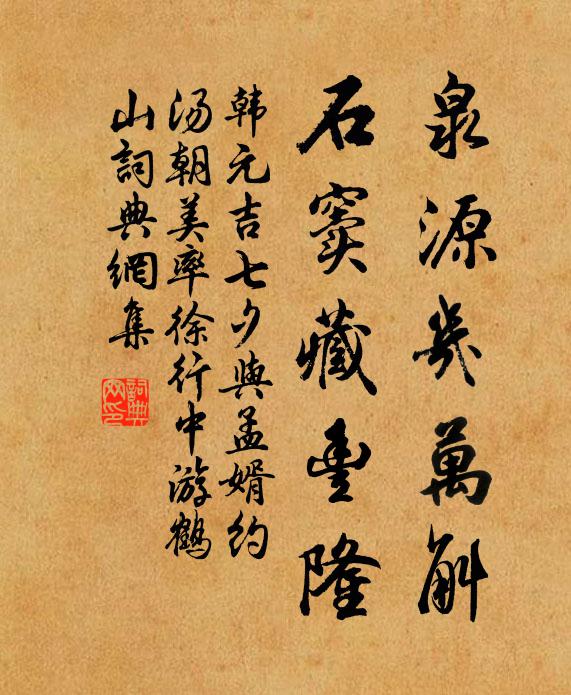 泉源幾萬斛
石竇藏豊隆
韩元吉七夕與孟婿约
汤朝美率徐行中游鹤
山詞典網集
詞典網印